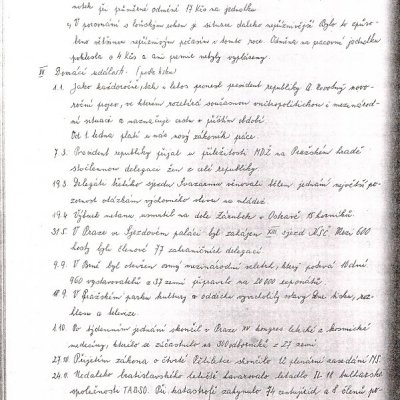 nitek již průměrná odměna 17 Kčs na jednotku
c/ V porovnání s loňským rokem je situace daleko nepříznivější. Bylo to způso-
beno většinou nepříznivým počasím v tomto roce. Odměna na pracovní jednotku
poklesla o 4 Kčs a ani prémie nebyly vyplaceny.
II Domácí události:
1.1. Jako každoročně, tak i letos pronesl president republiky A. Novotný novo-
roční projev, ve kterém rozebral současnou vnitropolitickou i mezinárod-
ní situaci a naznačuje cestu v příštím období.
Od 1. ledna platí u nás nový zákoník práce.
7.3. President republiky přijal u příležitosti MDŽ na Pražském hradě
stočlennou delegaci žen z celé republiky.
19.3. Delegáti třetího sjezdu Svazarmu věnovali během jednání největší po-
zornost otázkám výchovného vlivu na mládež
19.4. Výbuch metanu usmrtil na dole Zárubek v Ostravě 15 horníků.
31.5. V Praze ve Sjezdovém paláci byl zahájen XIII sjezd KSČ. Mezi 600
hosty byli členové 77 zahraničních delegací.
9.9. V Brně byl otevřen osmý mezinárodní veletrh, který potrvá 10 dní
960 vystavovatelů z 37 zemí připravilo na 20 000 exponátů.
18.9. V Pražském parku kultury a oddechu vyvrcholily oslavy Dne tisku, roz-
hlasu a televize.
1.10. Po týdenním jednání skončil v Praze XV kongres letecké a kosmické
medicíny, kterého se zúčastnilo na 300 odborníků z 27 zemí
27.10. Přijetím zákona o čtvrté pětiletce skončilo 12 plenární zasedání NS.
24.11. Nedaleko bratislavského letiště havarovalo letadlo Il-18 bulharské
společnosti TABSO. Při katastrofě zahynulo 74 cestujících a 8 členů po-